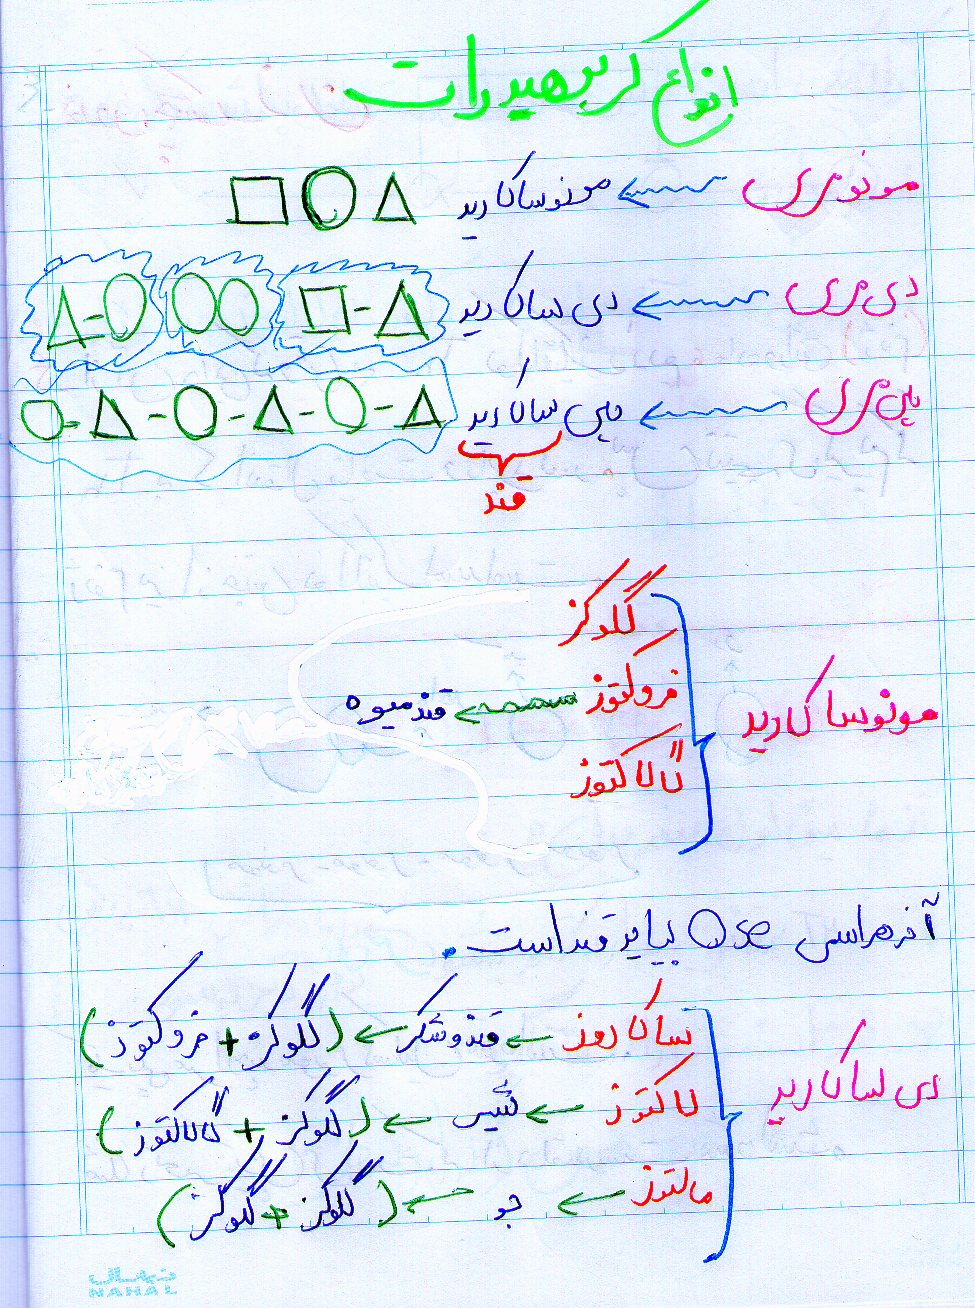 انواع کربوهیدرات
مونومری ← مونوساکارید
دی مری ← دی ساکارید
پلی مری ← پلی ساکارید
قند
مونوساکارید
گلوکز
فروکتوز ← قند میوه
گالاکتوز
آخر هر اسمی Ose بیاید قند است.
دی ساکارید
ساکاروز ← قند و شکر ← (گلوکز + فروکتوز)
لاکتوز ← شیر ← (گلوکز + گالاکتوز)
مالتوز ← جو ← (گلوکز + گلوکز)
نهال
NAHAL